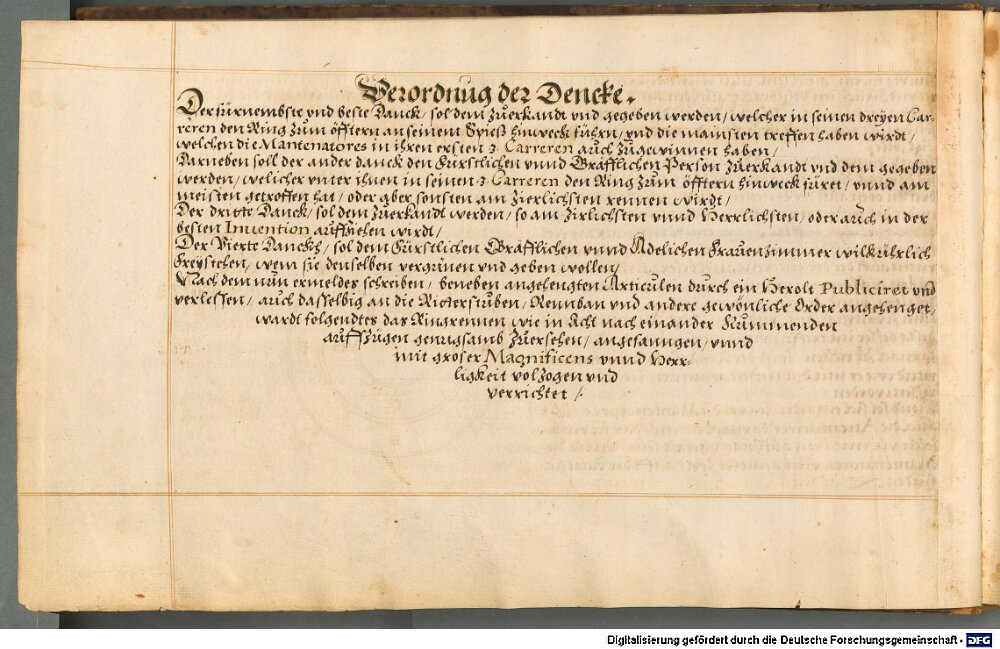 Verordnug der Dencke.
Der fürnembste vnd beste Danck / sol dem Zuerkandt vnd gegeben werden / welcher in seinen dreÿen Car-
reren den Ring Zum öfftern an seinem Spieß hinweck führn / vnd die mainsten treffen haben wirdt /
welchen die Mantenatores in ihren ersten 3. Carreren auch Zugewinnen haben /
Darneben soll der ander danck den Fürstlichen vnnd Gräfflichen Person Zuerkandt vnd dem gegeben
werden / welicher vnter ihnen in seinen 3. Carreren den Ring Zum öfftern hinweck füret / vnnd am
meisten getroffen hat / oder aber sonsten am Zierlichsten rennen wirdt /
Der dritte Danck / sol dem Zuerkandt werden / so am Zirlichsten vnnd Herrlichsten / oder auch in der
besten Inuention auffZiehen wirdt /
Der Vierte Danckh / sol dem Fürstlichen Gräfflichen vnnd Adelichen Frauenzimmer wilkührlich
Freÿstehen / wem sie denselben vergünen vnd geben wollen /
Nach dem nun ermeldes schreiben / beneben angehengten Articulen durch ein Herolt Publiciret vnd
verlessen / auch dasselbig an die Ritterstuben / Rennban vnd andere gewönliche Order angehenget,
wardt folgendtes das Ringrennen wie in Acht nach einander Kummenden
auffZügen genugsamb Zuersehen / angefanngen / vnnd
mit groser Magnificens vnnd Herr-
ligkeit volZogen vnd
verrichtet /.
Digitalisierung gefördert durch die Deutsche Forschungsgemeinschaft - DFG